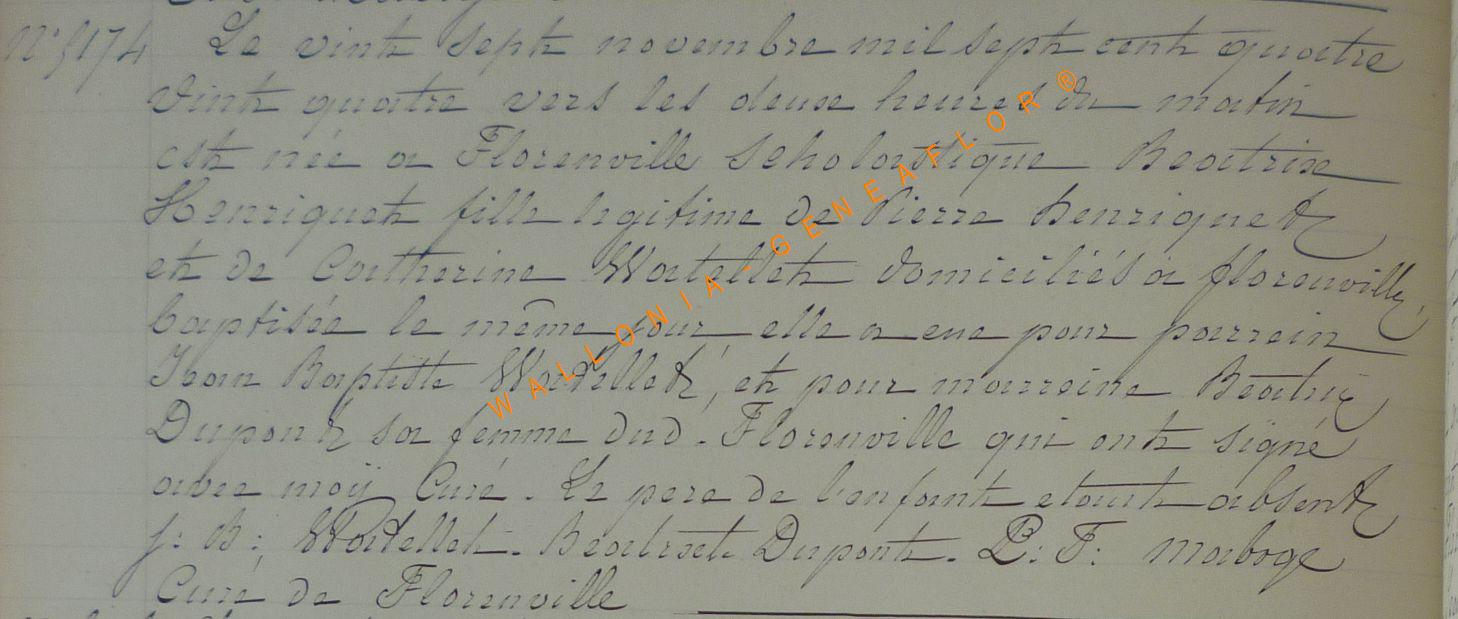 N° 5174 Le vint sept novembre mil sept cent quatre
vint quatre vers les deux heures du matin
est née a Florenville Scholastique Beatrix
Henriquet fille legitime de Pierre henriquet
et de Catherine Watellet domiciliés a florenville,
baptisée le même jour, elle a eue pour parrein
Jean Baptiste Watellet, et pour marreine Beatrix
Dupont sa femme dud. Florenville qui ont signé
avec moÿ Curé. Le pere de l'enfant etant absent
j: B: Watellet. Beatrix Dupont. P: F: Maboge
Curé de Florenville
WALLONIA-GENEAFLOR®